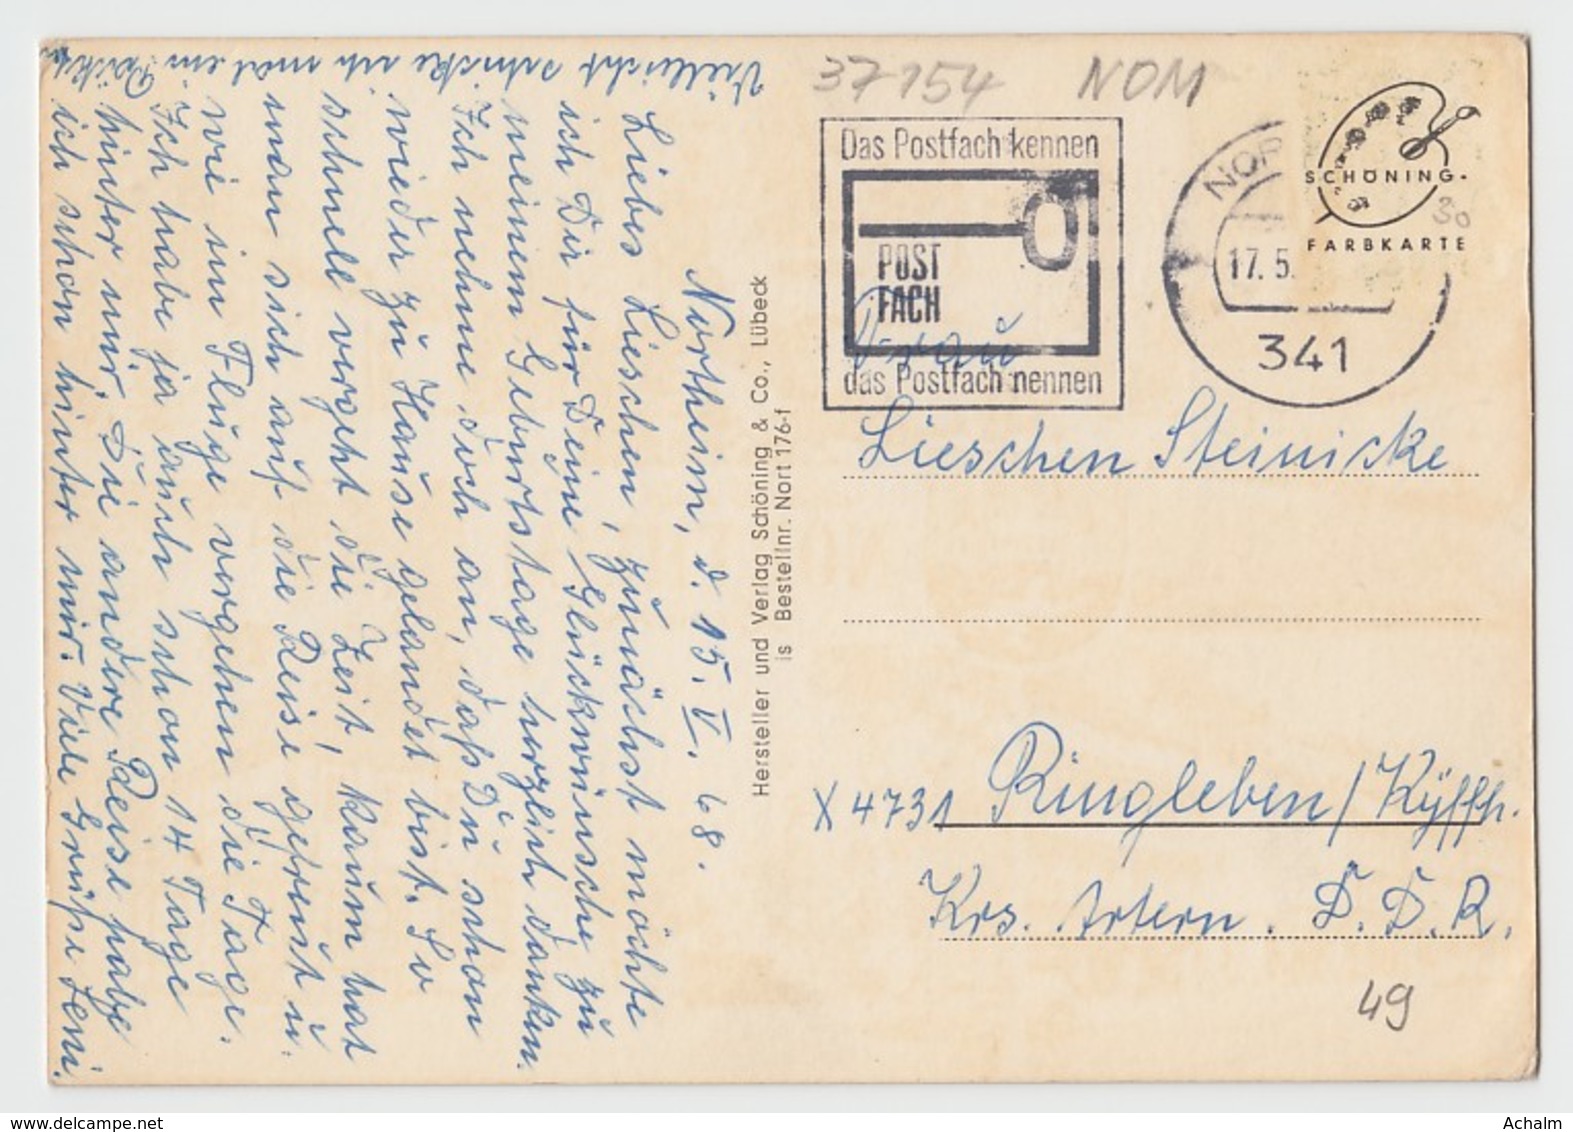 Northeim, d. 15. V. 68.
Liebes Lieschen, zunächst möchte
ich Dir für Deine Glückwünsche zu
meinem Geburtstage herzlich danken.
Ich nehme doch an, daß Du schon
wieder zu Hause gelandet bist. So
schnell vergeht die Zeit, kaum hat
man sich auf die Reise gefreut u.
wie im Fluge vergehen die Tage.
Ich habe ja auch schon 14 Tage
hinter mir. Die andere Reise habe
ich schon hinter mir. Viele Grüße Leni.
Vielleicht schicke ich mal ein
Hersteller und Verlag Schöning & Co., Lübeck
is Bestellnr. Nort 176-f
37154 NOM
Das Postfach kennen
POST
FACH
das Postfach nennen
NOR
17.5.
341
SCHÖNING-
FARBKARTE
30
Frau
Lieschen Steinicke
X 4731 Ringleben/Kyffh.
Krs. Artern. D.D.R.
49
Achalm